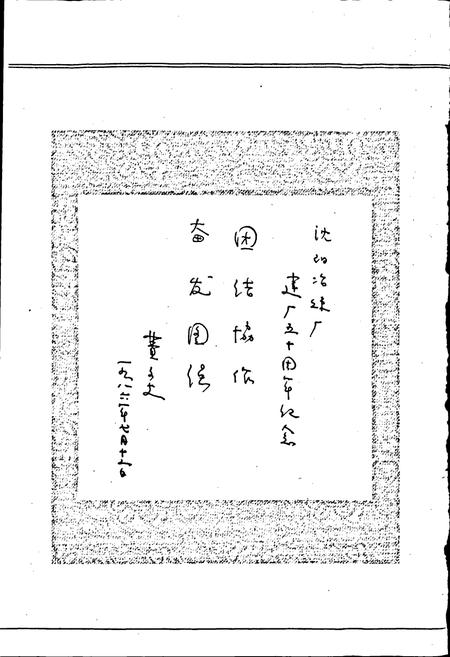 沈阳冶炼厂
建厂五十周年纪念
团结協作
奋发图强
费子文
一九八六年七月十一日